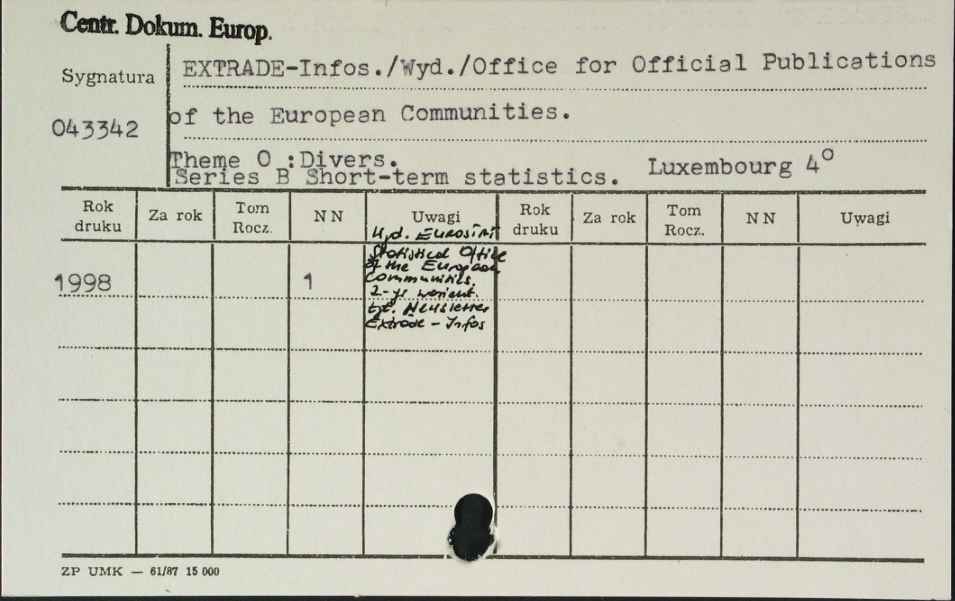 Centr. Dokum. Europ.
Sygnatura
EXTRADE-Infos./Wyd./Office for Official Publications
043342
of the European Communities.
Theme O :Divers.
Series B Short-term statistics.
Luxembourg 4°
Rok druku
Za rok
Tom Rocz.
N N
Uwagi
Rok druku
Za rok
Tom Rocz.
N N
Uwagi
1998
1
Wyd. EUROSTAT
Statistical Office
of the European
Communities.
2-gi wariant.
tyt. Newsletter
Extrade - Infos
ZP UMK — 61/87 15 000